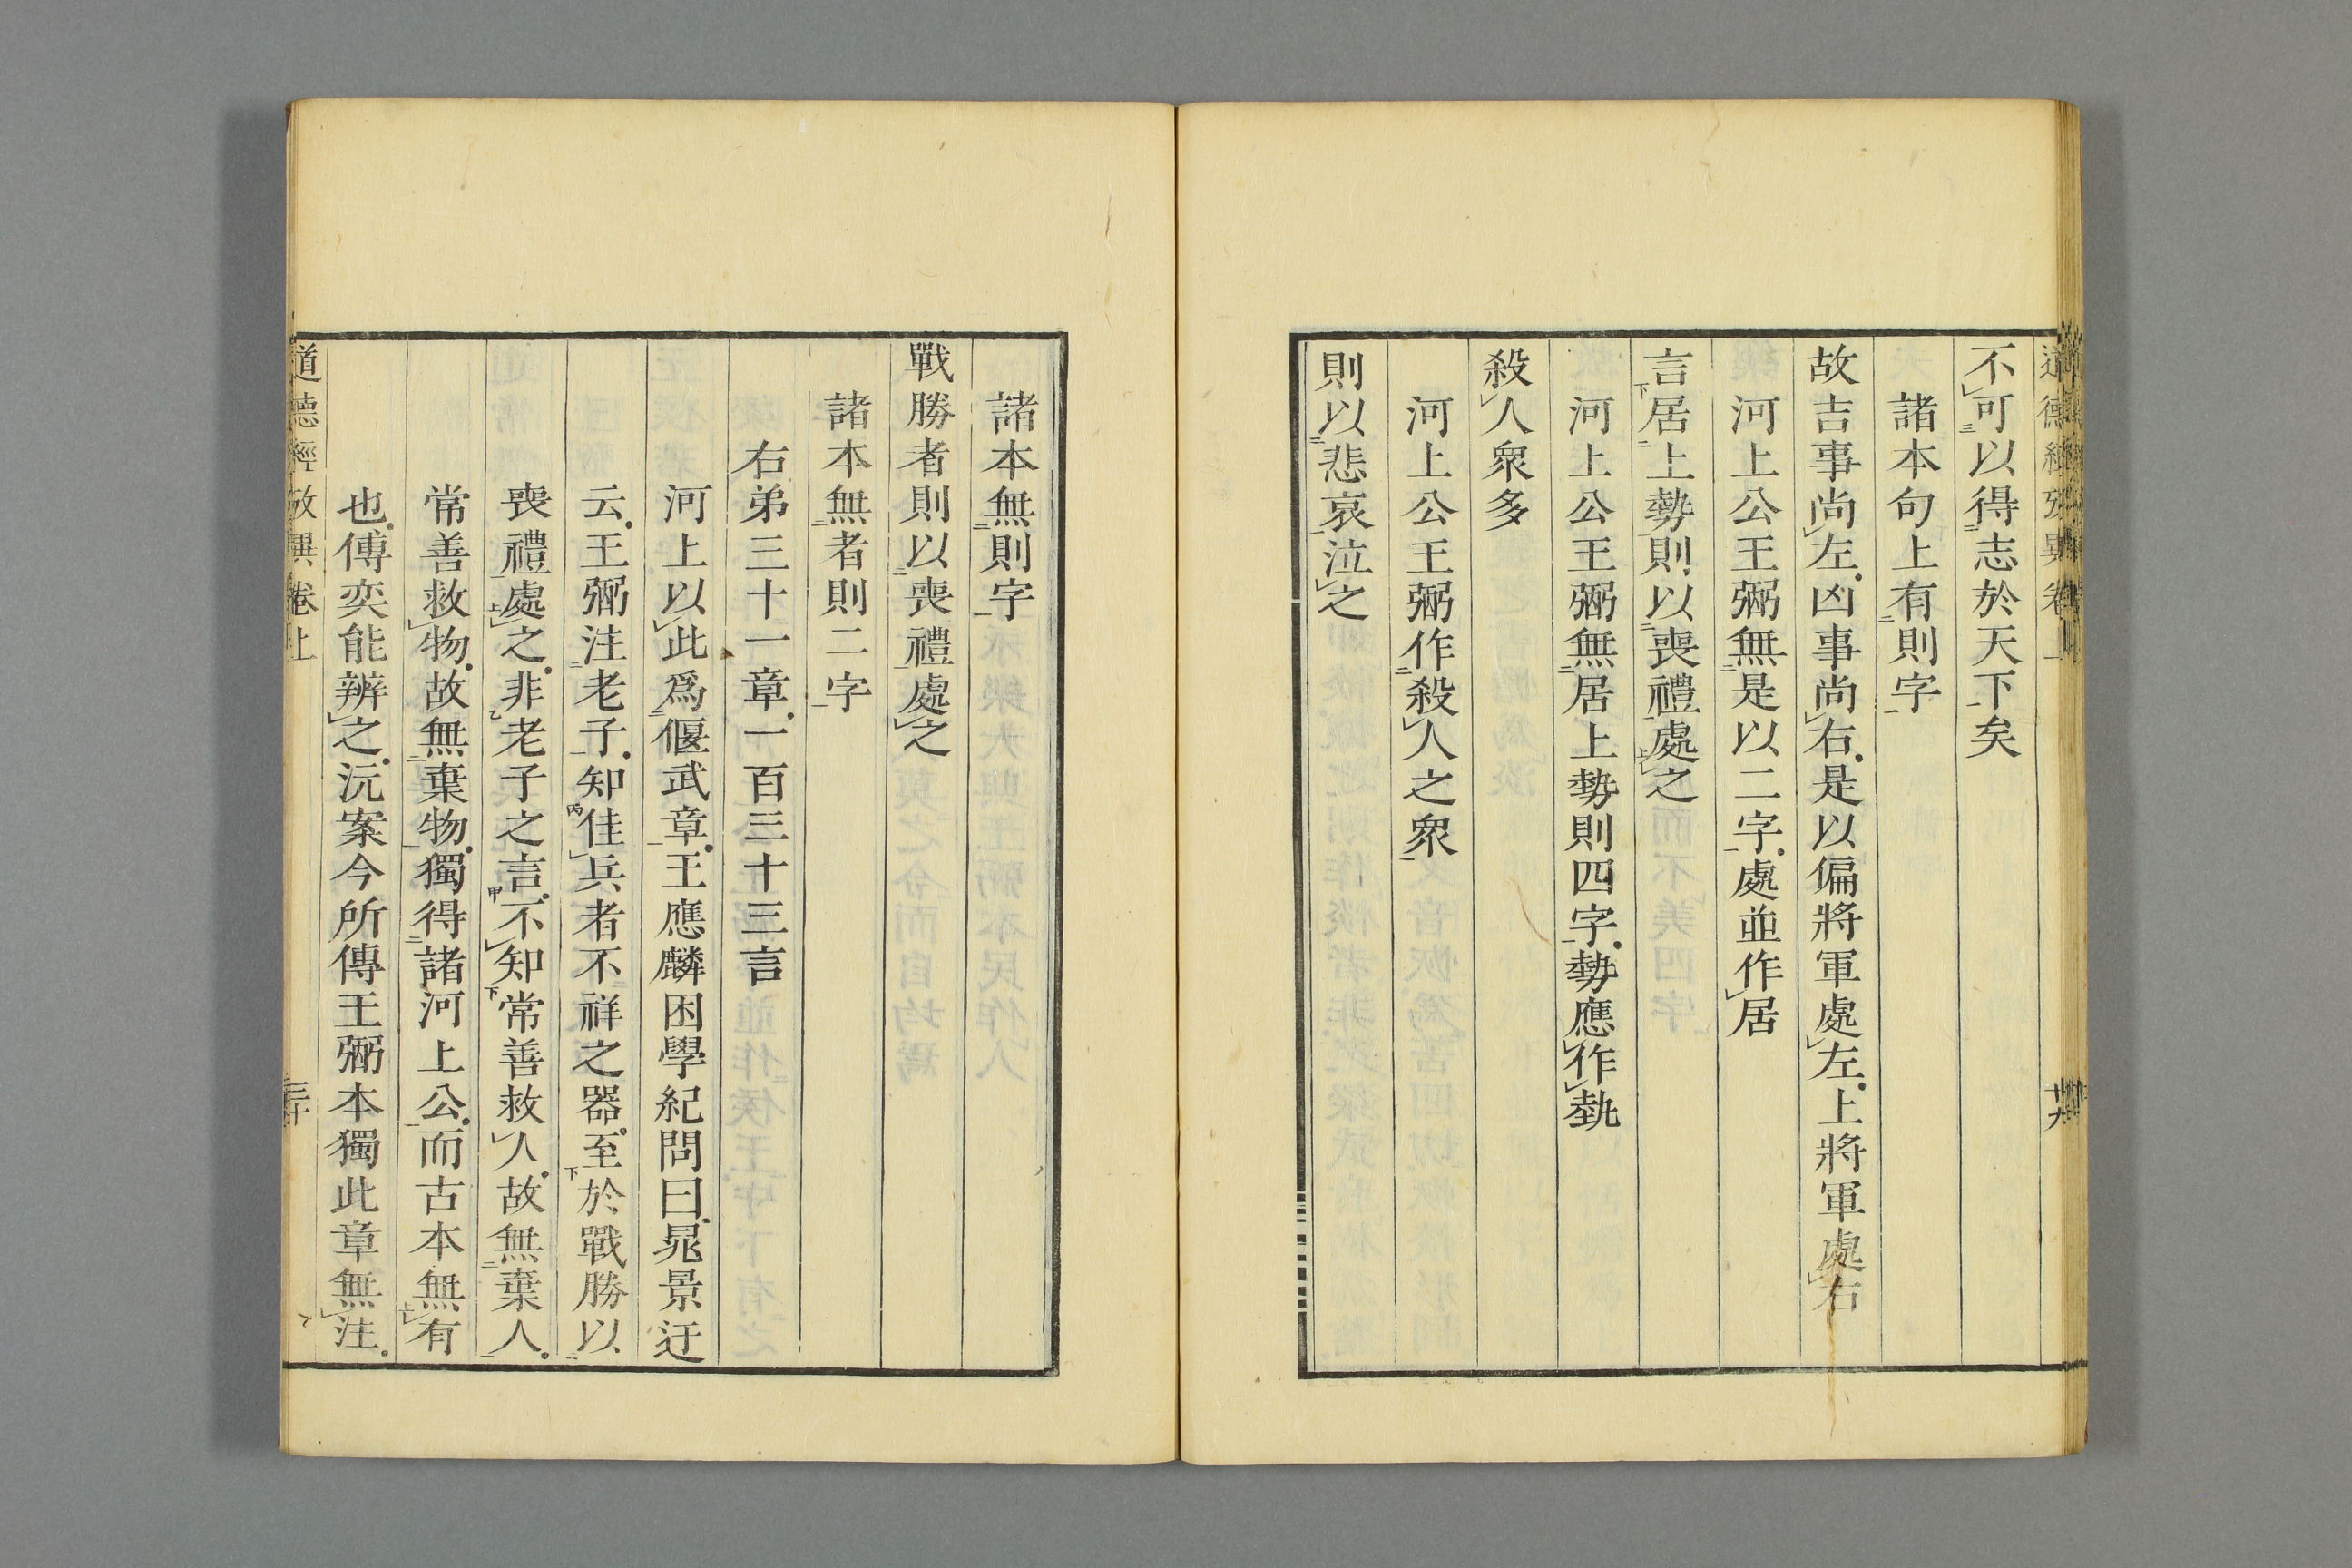 道德經攷異卷上
廿九
不可以得志於天下矣
諸本句上有則字
故吉事尚左凶事尚右是以偏將軍處左上將軍處右
河上公王弼無是以二字處並作居
言居上勢則以喪禮處之
河上公王弼無居上勢則四字勢應作埶
殺人衆多
河上公王弼作殺人之衆
則以悲哀泣之
諸本無則字
戰勝者則以喪禮處之
諸本無者則二字
右弟三十一章一百三十三言
河上以此爲偃武章王應麟困學紀問曰晁景迂
云王弼注老子知佳兵者不祥之器至於戰勝以
喪禮處之非老子之言不知常善救人故無棄人
常善救物故無棄物獨得諸河上公而古本無有
也傅奕能辨之沅案今所傳王弼本獨此章無注
道德經攷異卷上
三十